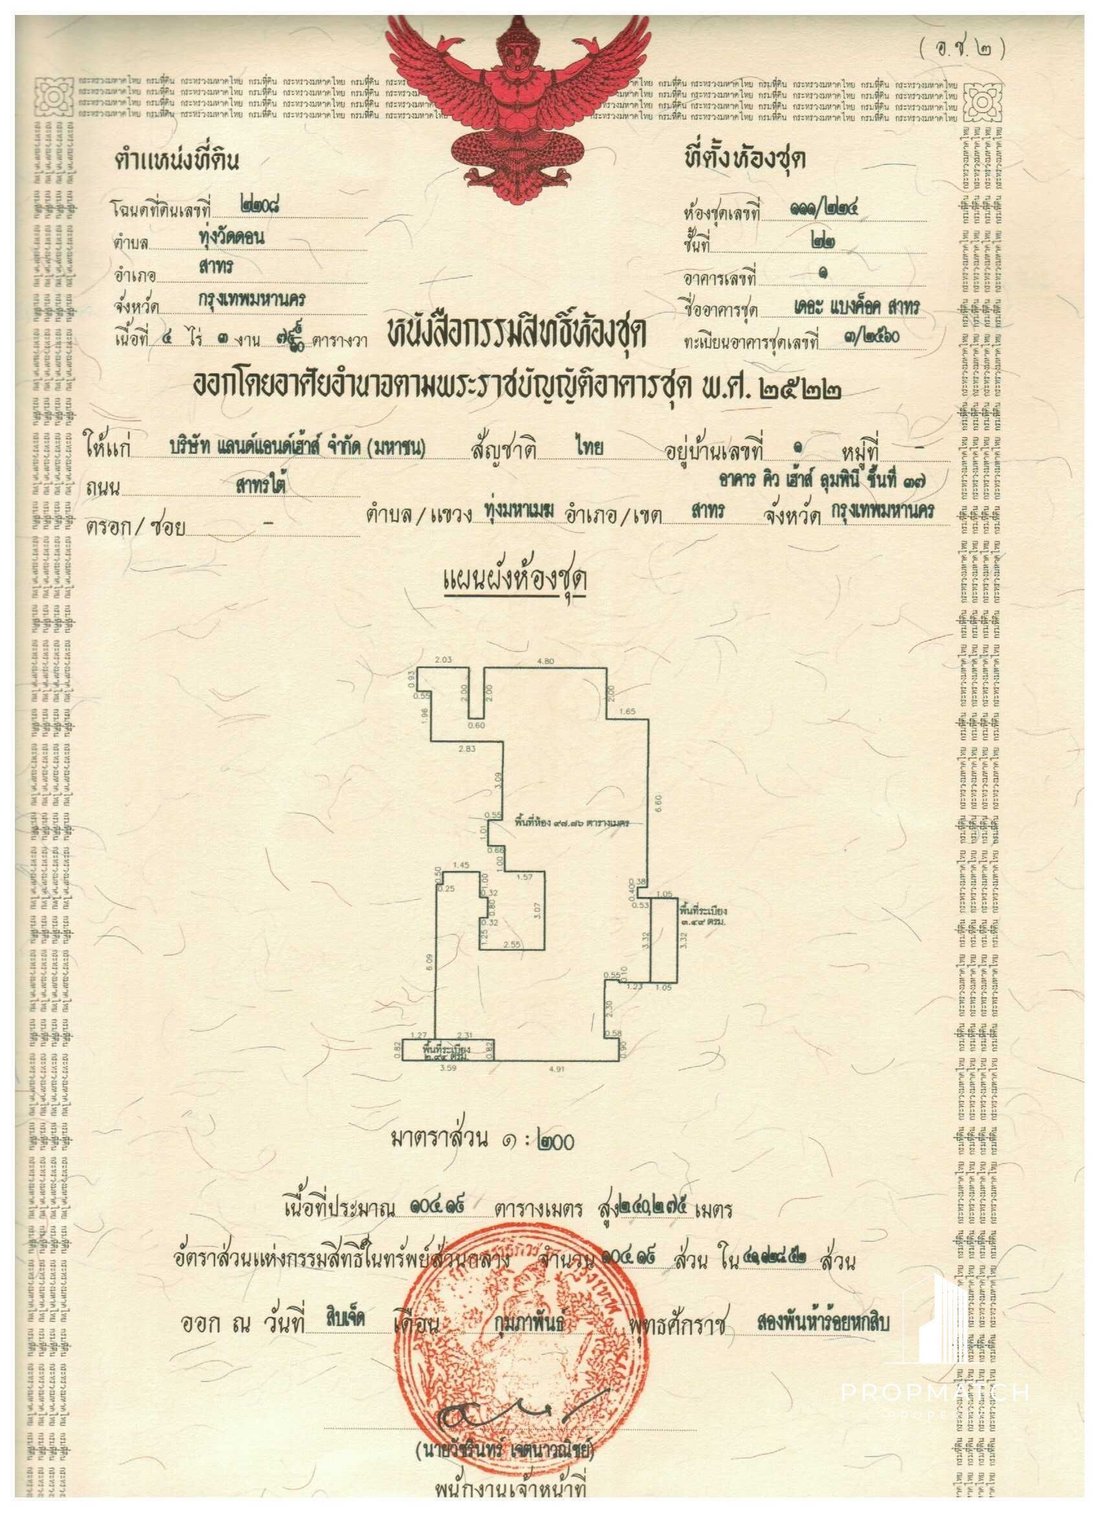 (อ.ช.๒)
ตำแหน่งที่ดิน
โฉนดที่ดินเลขที่ ๒๒๐๘
ตำบล ทุ่งวัดดอน
อำเภอ สาทร
จังหวัด กรุงเทพมหานคร
เนื้อที่ ๔ ไร่ ๓ งาน ตารางวา
ที่ตั้งห้องชุด
ห้องชุดเลขที่ ๑๑๑/๒๒๔
ชั้นที่ ๒๒
อาคารเลขที่ ๑
ชื่ออาคารชุด เดอะ แบงค็อค สาทร
ทะเบียนอาคารชุดเลขที่ ๓/๒๕๖๐
หนังสือกรรมสิทธิ์ห้องชุด
ออกโดยอาศัยอำนาจตามพระราชบัญญัติอาคารชุด พ.ศ. ๒๕๒๒
ให้แก่ บริษัท แลนด์แอนด์เฮ้าส์ จำกัด (มหาชน) สัญชาติ ไทย อยู่บ้านเลขที่ ๑ หมู่ที่ -
ถนน สาทรใต้ อาคาร คิว เฮ้าส์ ลุมพินี ชั้นที่ ๓๗
ตรอก/ซอย - ตำบล/แขวง ทุ่งมหาเมฆ อำเภอ/เขต สาทร จังหวัด กรุงเทพมหานคร
แผนผังห้องชุด
2.03
4.80
0.93
0.55
2.00
2.00
2.00
1.96
0.60
1.65
2.83
3.09
6.60
0.55
พื้นที่ห้อง ๙๗.๗๖ ตารางเมตร
1.01
0.66
1.00
1.45
1.57
0.50
0.25
1.00
0.80
3.07
1.25
2.55
0.40
0.53
1.05
พื้นที่ระเบียง
๓.๔๙ ตรม.
3.32
3.32
6.09
0.55
0.10
1.23
1.05
2.30
0.58
1.27
2.31
0.82
พื้นที่ระเบียง
๒.๙๔ ตรม.
0.82
0.90
3.59
4.91
มาตราส่วน ๑ : ๒๐๐
เนื้อที่ประมาณ ๑๐๔.๑๙ ตารางเมตร สูง ๒.๔๐,๒.๗๕ เมตร
อัตราส่วนแห่งกรรมสิทธิ์ในทรัพย์ส่วนกลาง จำนวน ๑๐๔.๑๙ ส่วน ใน ส่วน
ออก ณ วันที่ สิบเจ็ด เดือน กุมภาพันธ์ พุทธศักราช สองพันห้าร้อยหกสิบ
PROPMATCH
(นายวัชรินทร์ เจตนาวณิชย์)
พนักงานเจ้าหน้าที่